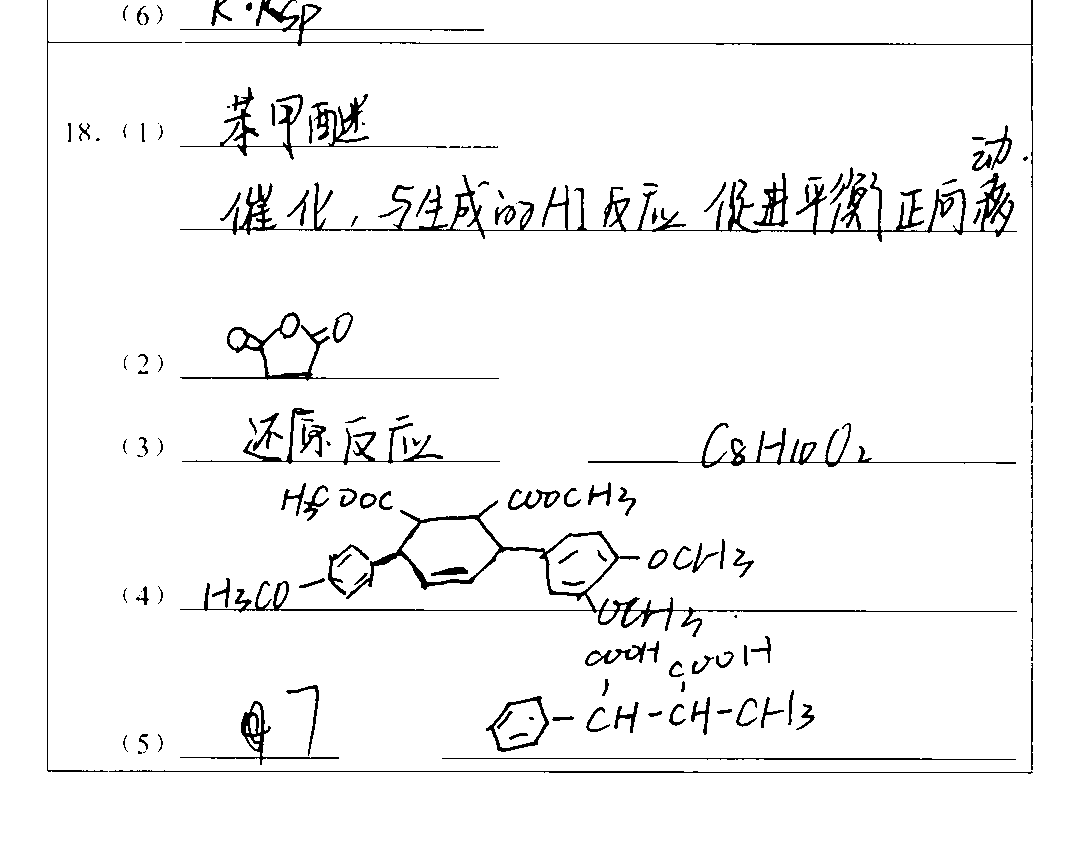 (6) K·Ksp
18. (1) 苯甲醚
动.
催化,与生成的HI反应 促进平衡正向移
O O O
(2)
(3) 还原反应 C8H10O2
H3COOC COOCH3
OCH3
(4) H3CO
OCH3
COOH COOH
(5) 7 CH-CH-CH3